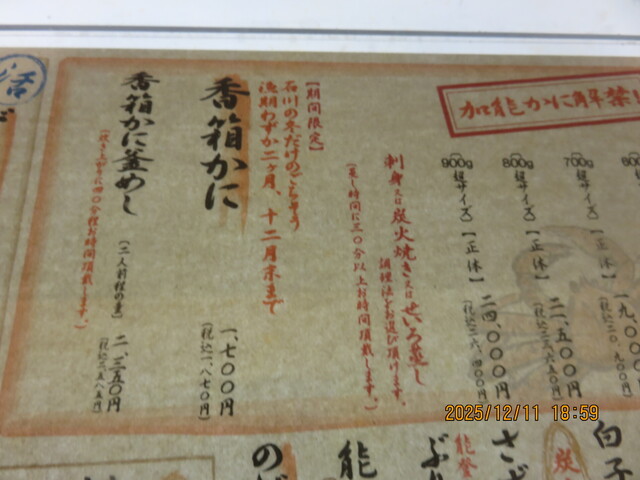 加能かに解禁!
700g
【正体】
800g
超サイズ
【正体】
二一、五〇〇円
(税込二三、六五〇円)
900g
超サイズ
【正体】
二四、〇〇〇円
(税込二六、四〇〇円)
刺身又は炭火焼き又はせいろ蒸し
調理法をお選び頂けます。
(蒸し時間に三〇分以上お時間頂戴します。)
【期間限定】
石川の冬だけのごちそう
漁期わずか二ヶ月、十二月末まで
香箱かに
一、七〇〇円
(税込一、八七〇円)
香箱かに釜めし
(二人前程の量)
二、三五〇円
(税込二、五八五円)
(炊き上がりに四〇分程お時間頂戴します。)
活
白子
さざ
能登
ぶり
能
2025/12/11 18:59